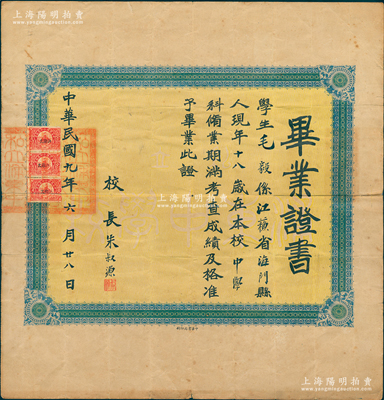 上海陽明拍賣
www.yangmingauction.com
畢業證書
學生毛毅係江蘇省海門縣
人現年十八歲在本校中學
科備業期滿考查成績及格准
予畢業此證
校長朱叔源
中華民國九年六月廿八日
上海阳明拍卖
www.yangmingauction.com